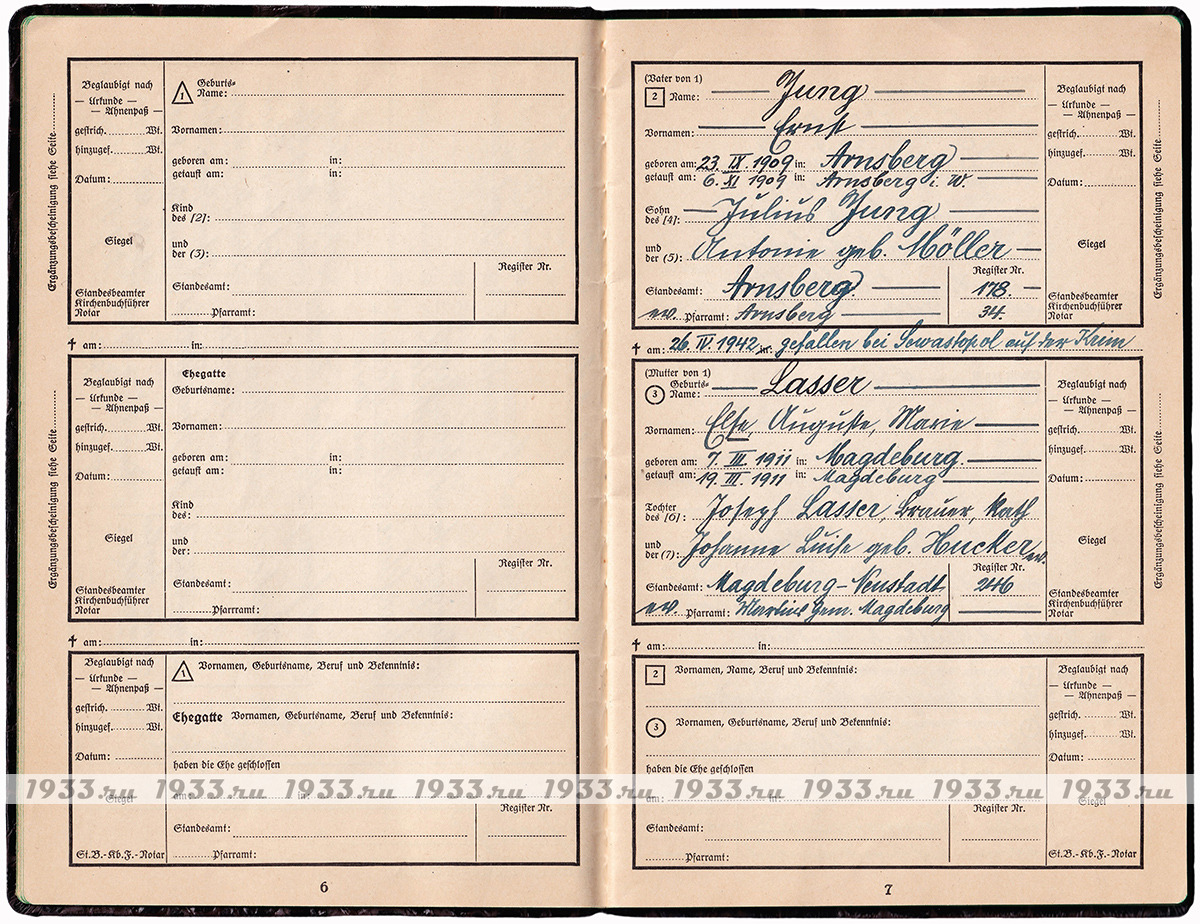 Ergänzungsbescheinigung siehe Seite
Beglaubigt nach
— Urkunde —
— Ahnenpaß —
gestrich. Wt.
hinzugef. Wt.
Datum:
Siegel
Standesbeamter
Kirchenbuchführer
Notar
1 Geburts-
Name:
Vornamen:
geboren am: in:
getauft am: in:
Kind
des [2]:
und
der (3):
Register Nr.
Standesamt:
Pfarramt:
† am: in:
Ergänzungsbescheinigung siehe Seite
Beglaubigt nach
— Urkunde —
— Ahnenpaß —
gestrich. Wt.
hinzugef. Wt.
Datum:
Siegel
Standesbeamter
Kirchenbuchführer
Notar
Ehegatte
Geburtsname:
Vornamen:
geboren am: in:
getauft am: in:
Kind
des:
und
der:
Register Nr.
Standesamt:
Pfarramt:
† am: in:
Beglaubigt nach
— Urkunde —
— Ahnenpaß —
gestrich. Wt.
hinzugef. Wt.
Datum:
Siegel
St.B.-Kb.F.-Notar
1 Vornamen, Geburtsname, Beruf und Bekenntnis:
Ehegatte Vornamen, Geburtsname, Beruf und Bekenntnis:
haben die Ehe geschlossen
am: in:
Register Nr.
Standesamt:
Pfarramt:
6
(Vater von 1)
2 Name: Jung
Vornamen: Ernst
geboren am: 23. IX. 1909 in: Arnsberg
getauft am: 6. XI 1909 in: Arnsberg i. W.
Sohn
des [4]: Julius Jung
und
der (5): Antonie geb. Möller
Register Nr.
Standesamt: Arnsberg 178.
ev. Pfarramt: Arnsberg 34.
† am: 26. IV. 1942 in: gefallen bei Sewastopol auf der Krim
Beglaubigt nach
— Urkunde —
— Ahnenpaß —
gestrich. Wt.
hinzugef. Wt.
Datum:
Siegel
Standesbeamter
Kirchenbuchführer
Notar
Ergänzungsbescheinigung siehe Seite
(Mutter von 1)
3 Geburts-
Name: Lasser
Vornamen: Else, Auguste, Marie
geboren am: 7. III 1911 in: Magdeburg.
getauft am: 19. III. 1911 in: Magdeburg
Tochter
des [6]: Joseph Lasser, Brauer, kath
und
der (7): Johanne Luise geb. Hucker ev.
Register Nr.
Standesamt: Magdeburg-Neustadt 246
ev. Pfarramt: Martins Gem. Magdeburg
† am: in:
Beglaubigt nach
— Urkunde —
— Ahnenpaß —
gestrich. Wt.
hinzugef. Wt.
Datum:
Siegel
Standesbeamter
Kirchenbuchführer
Notar
Ergänzungsbescheinigung siehe Seite
2 Vornamen, Name, Beruf und Bekenntnis:
3 Vornamen, Geburtsname, Beruf und Bekenntnis:
haben die Ehe geschlossen
am: in:
Register Nr.
Standesamt:
Pfarramt:
Beglaubigt nach
— Urkunde —
— Ahnenpaß —
gestrich. Wt.
hinzugef. Wt.
Datum:
Siegel
St.B.-Kb.F.-Notar
7
1933.ru 1933.ru 1933.ru 1933.ru 1933.ru 1933.ru 1933.ru 1933.ru 1933.ru